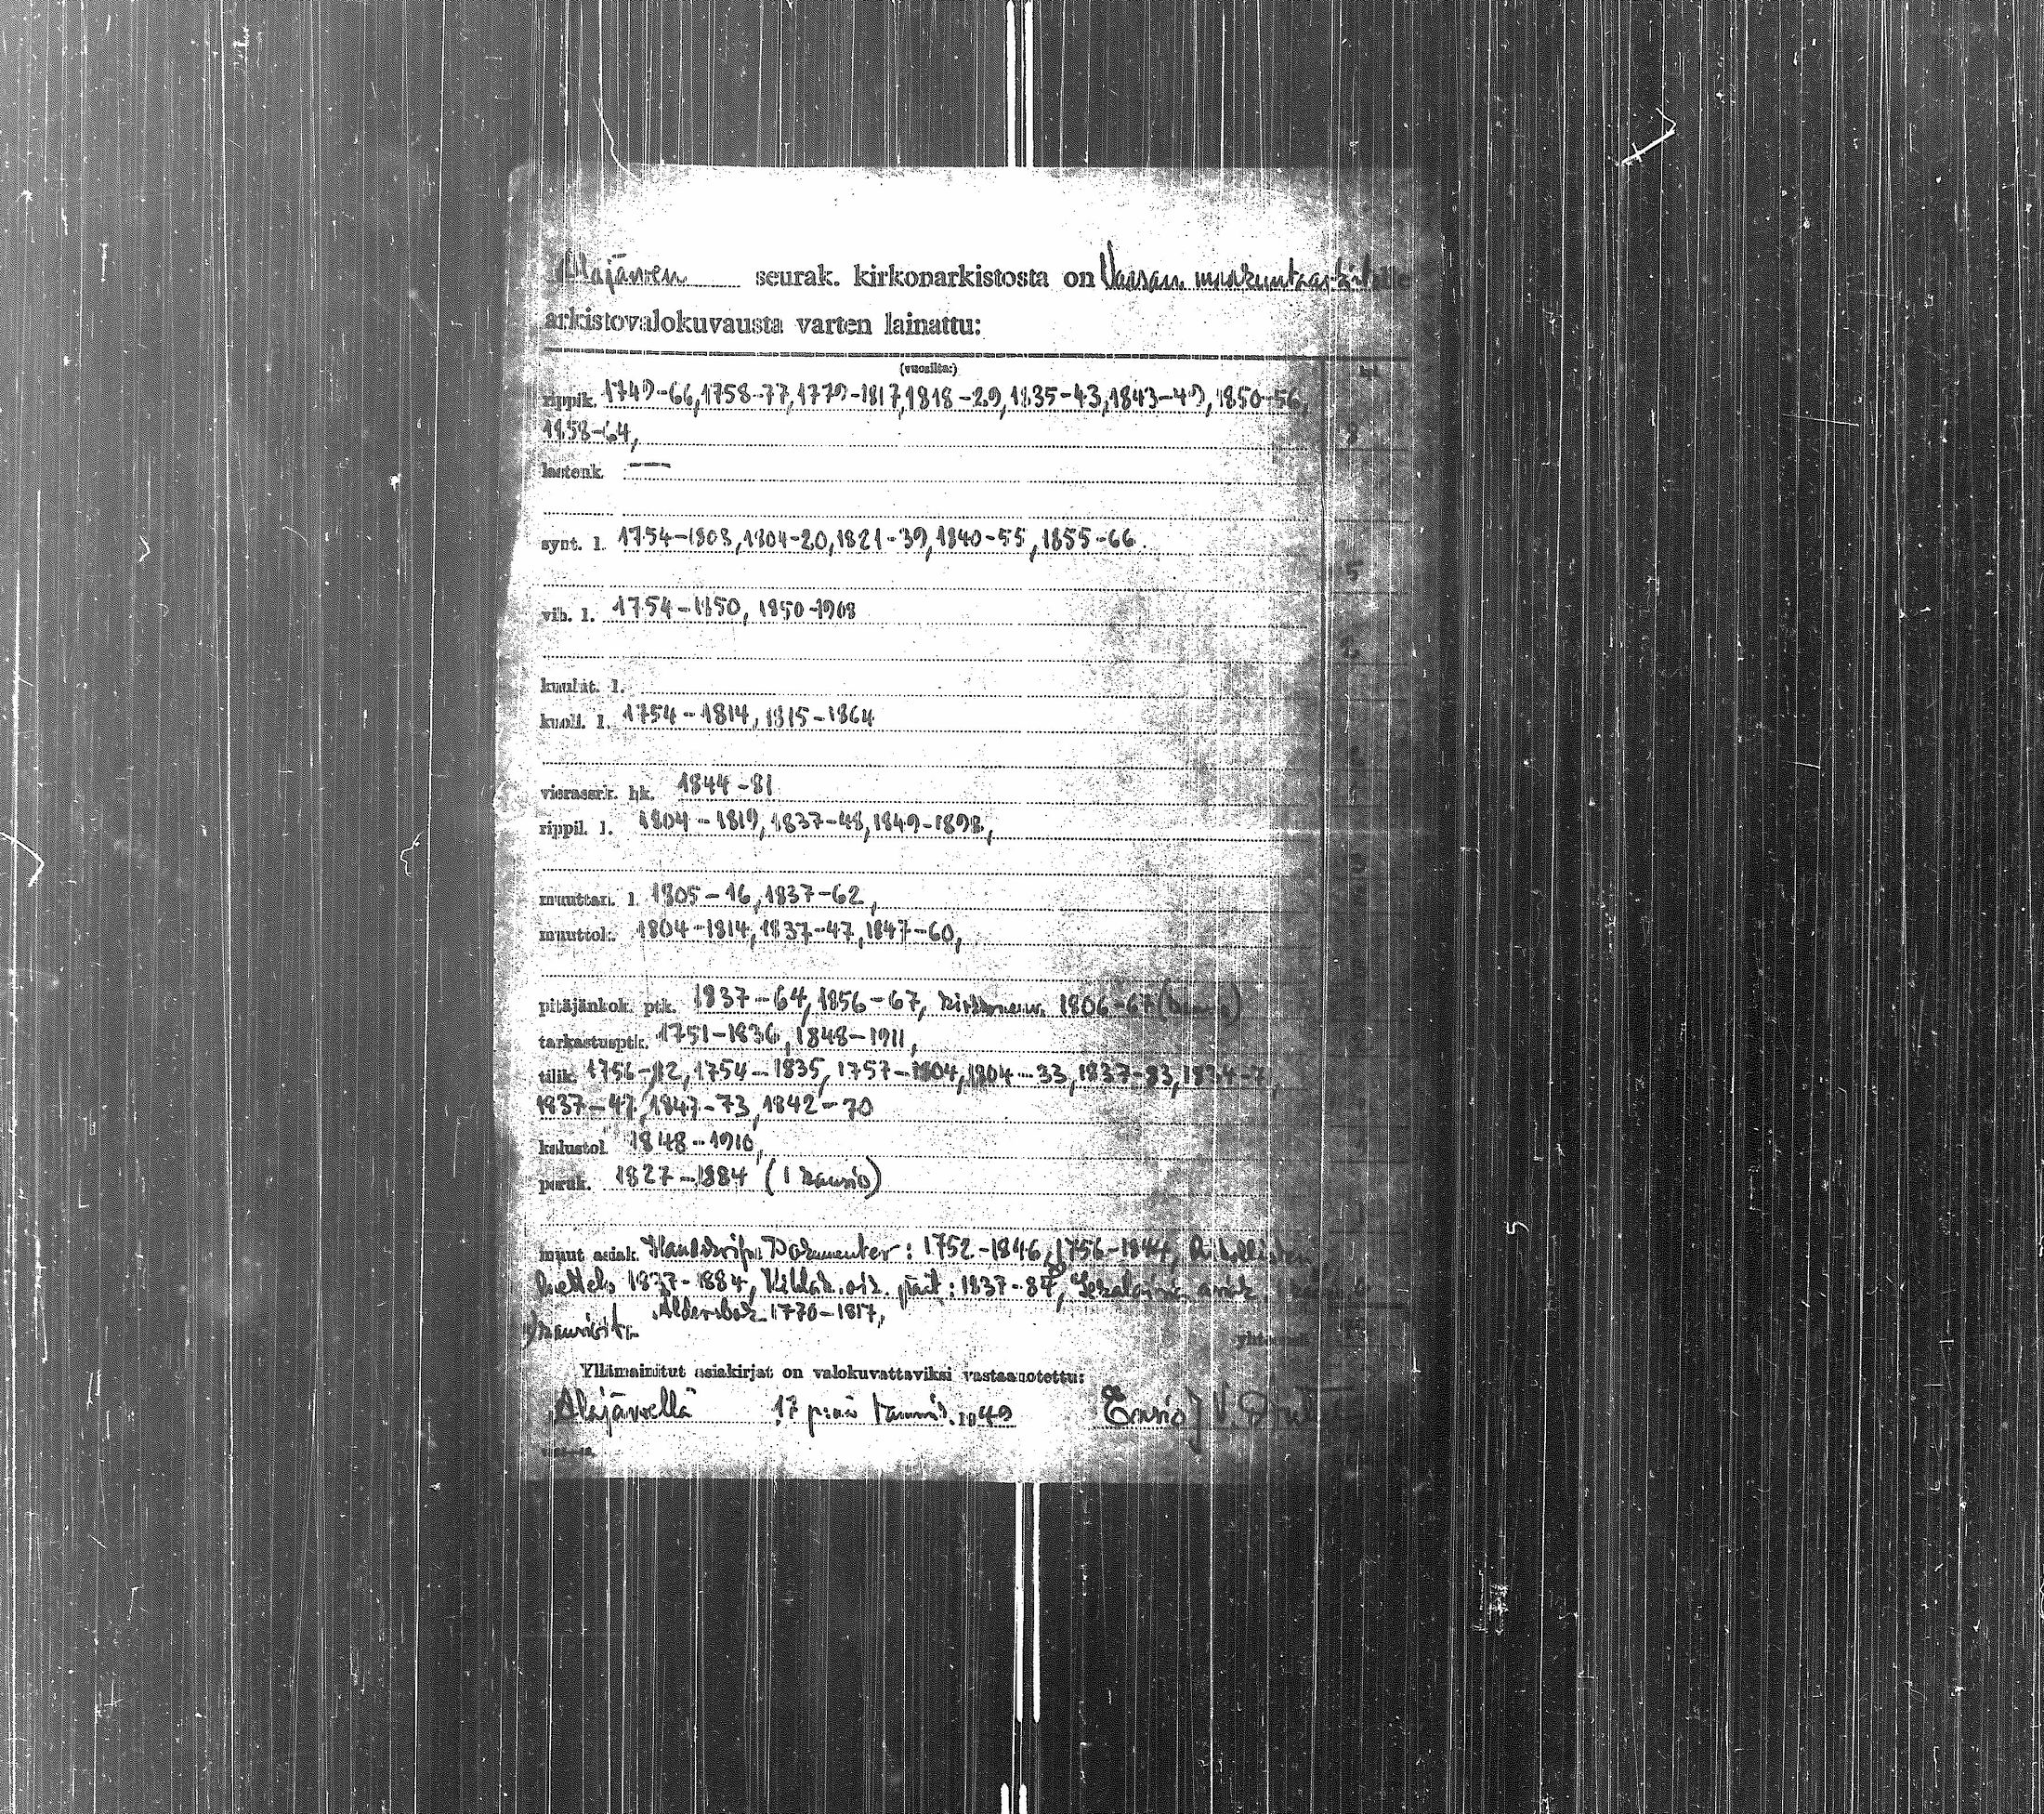 Alajärven seurak. kirkonarkistosta on Vaasan maakuntaarkistolle
arkistovalokuvausta varten lainattu:
(vuosilta:)
rippik. 1749-66, 1758-77, 1779-1817, 1818-29, 1835-43, 1843-49, 1850-56,
1858-64, 8
lastenk. —
synt. l. 1754-1803, 1804-20, 1821-39, 1840-55, 1855-66.
5
vih. l. 1754-1850, 1850-1908
2
kuulut. l.
kuoll. l. 1754-1814, 1815-1864
vierassrk. hk. 1844-81
rippil. l. 1804-1819, 1837-48, 1849-1898,
3
muuttan. l. 1805-16, 1837-62,
muuttol. 1804-1814, 1837-47, 1847-60,
pitäjänkok. ptk. 1837-64, 1856-67, 1806-67
tarkastusptk. 1751-1836, 1848-1911,
tilik. 1756-82, 1754-1835, 1757-1804, 1804-33, 1837-83,
1837-47, 1847-73, 1842-70
kalustol. 1848-1910,
peruk. 1827-1884 (1 kansio)
muut asiak. Dokumenter: 1752-1846, 1756-1844,
1837-1884, 1837-87,
Åldersbok 1770-1817,
Yllämainitut asiakirjat on valokuvattaviksi vastaanotettu:
Alajärvellä 17 p:nä tammik. 1949 Ensio J. V.